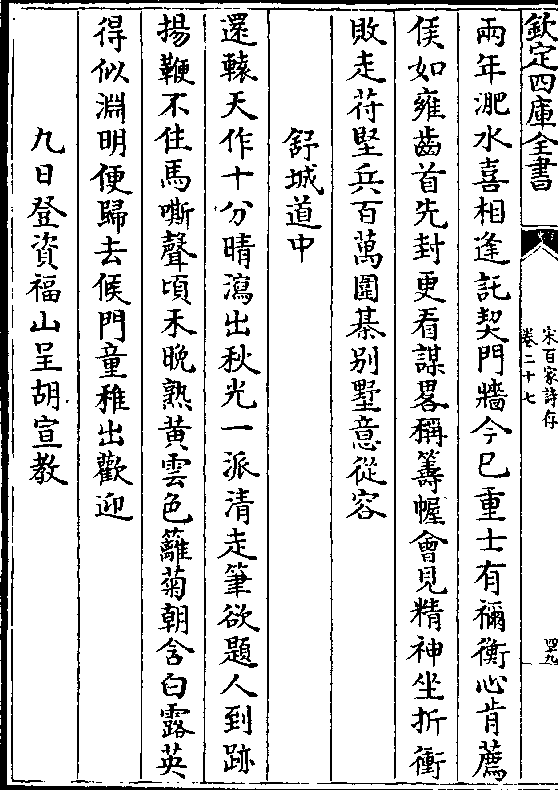 欽定四庫全書
宋百家詩存
卷二十七
四九
兩年淝水喜相逢託契門牆今已重士有禰衡心肯薦
侯如雍齒首先封更看謀畧稱籌幄會見精神坐折衝
敗走苻堅兵百萬圍棊别墅意從容
舒城道中
還轅天作十分晴瀉出秋光一派清走筆欲題人到跡
揚鞭不住馬嘶聲頃禾晚熟黃雲色籬菊朝含白露英
得似淵明便歸去候門童稚出歡迎
九日登資福山呈胡宣教